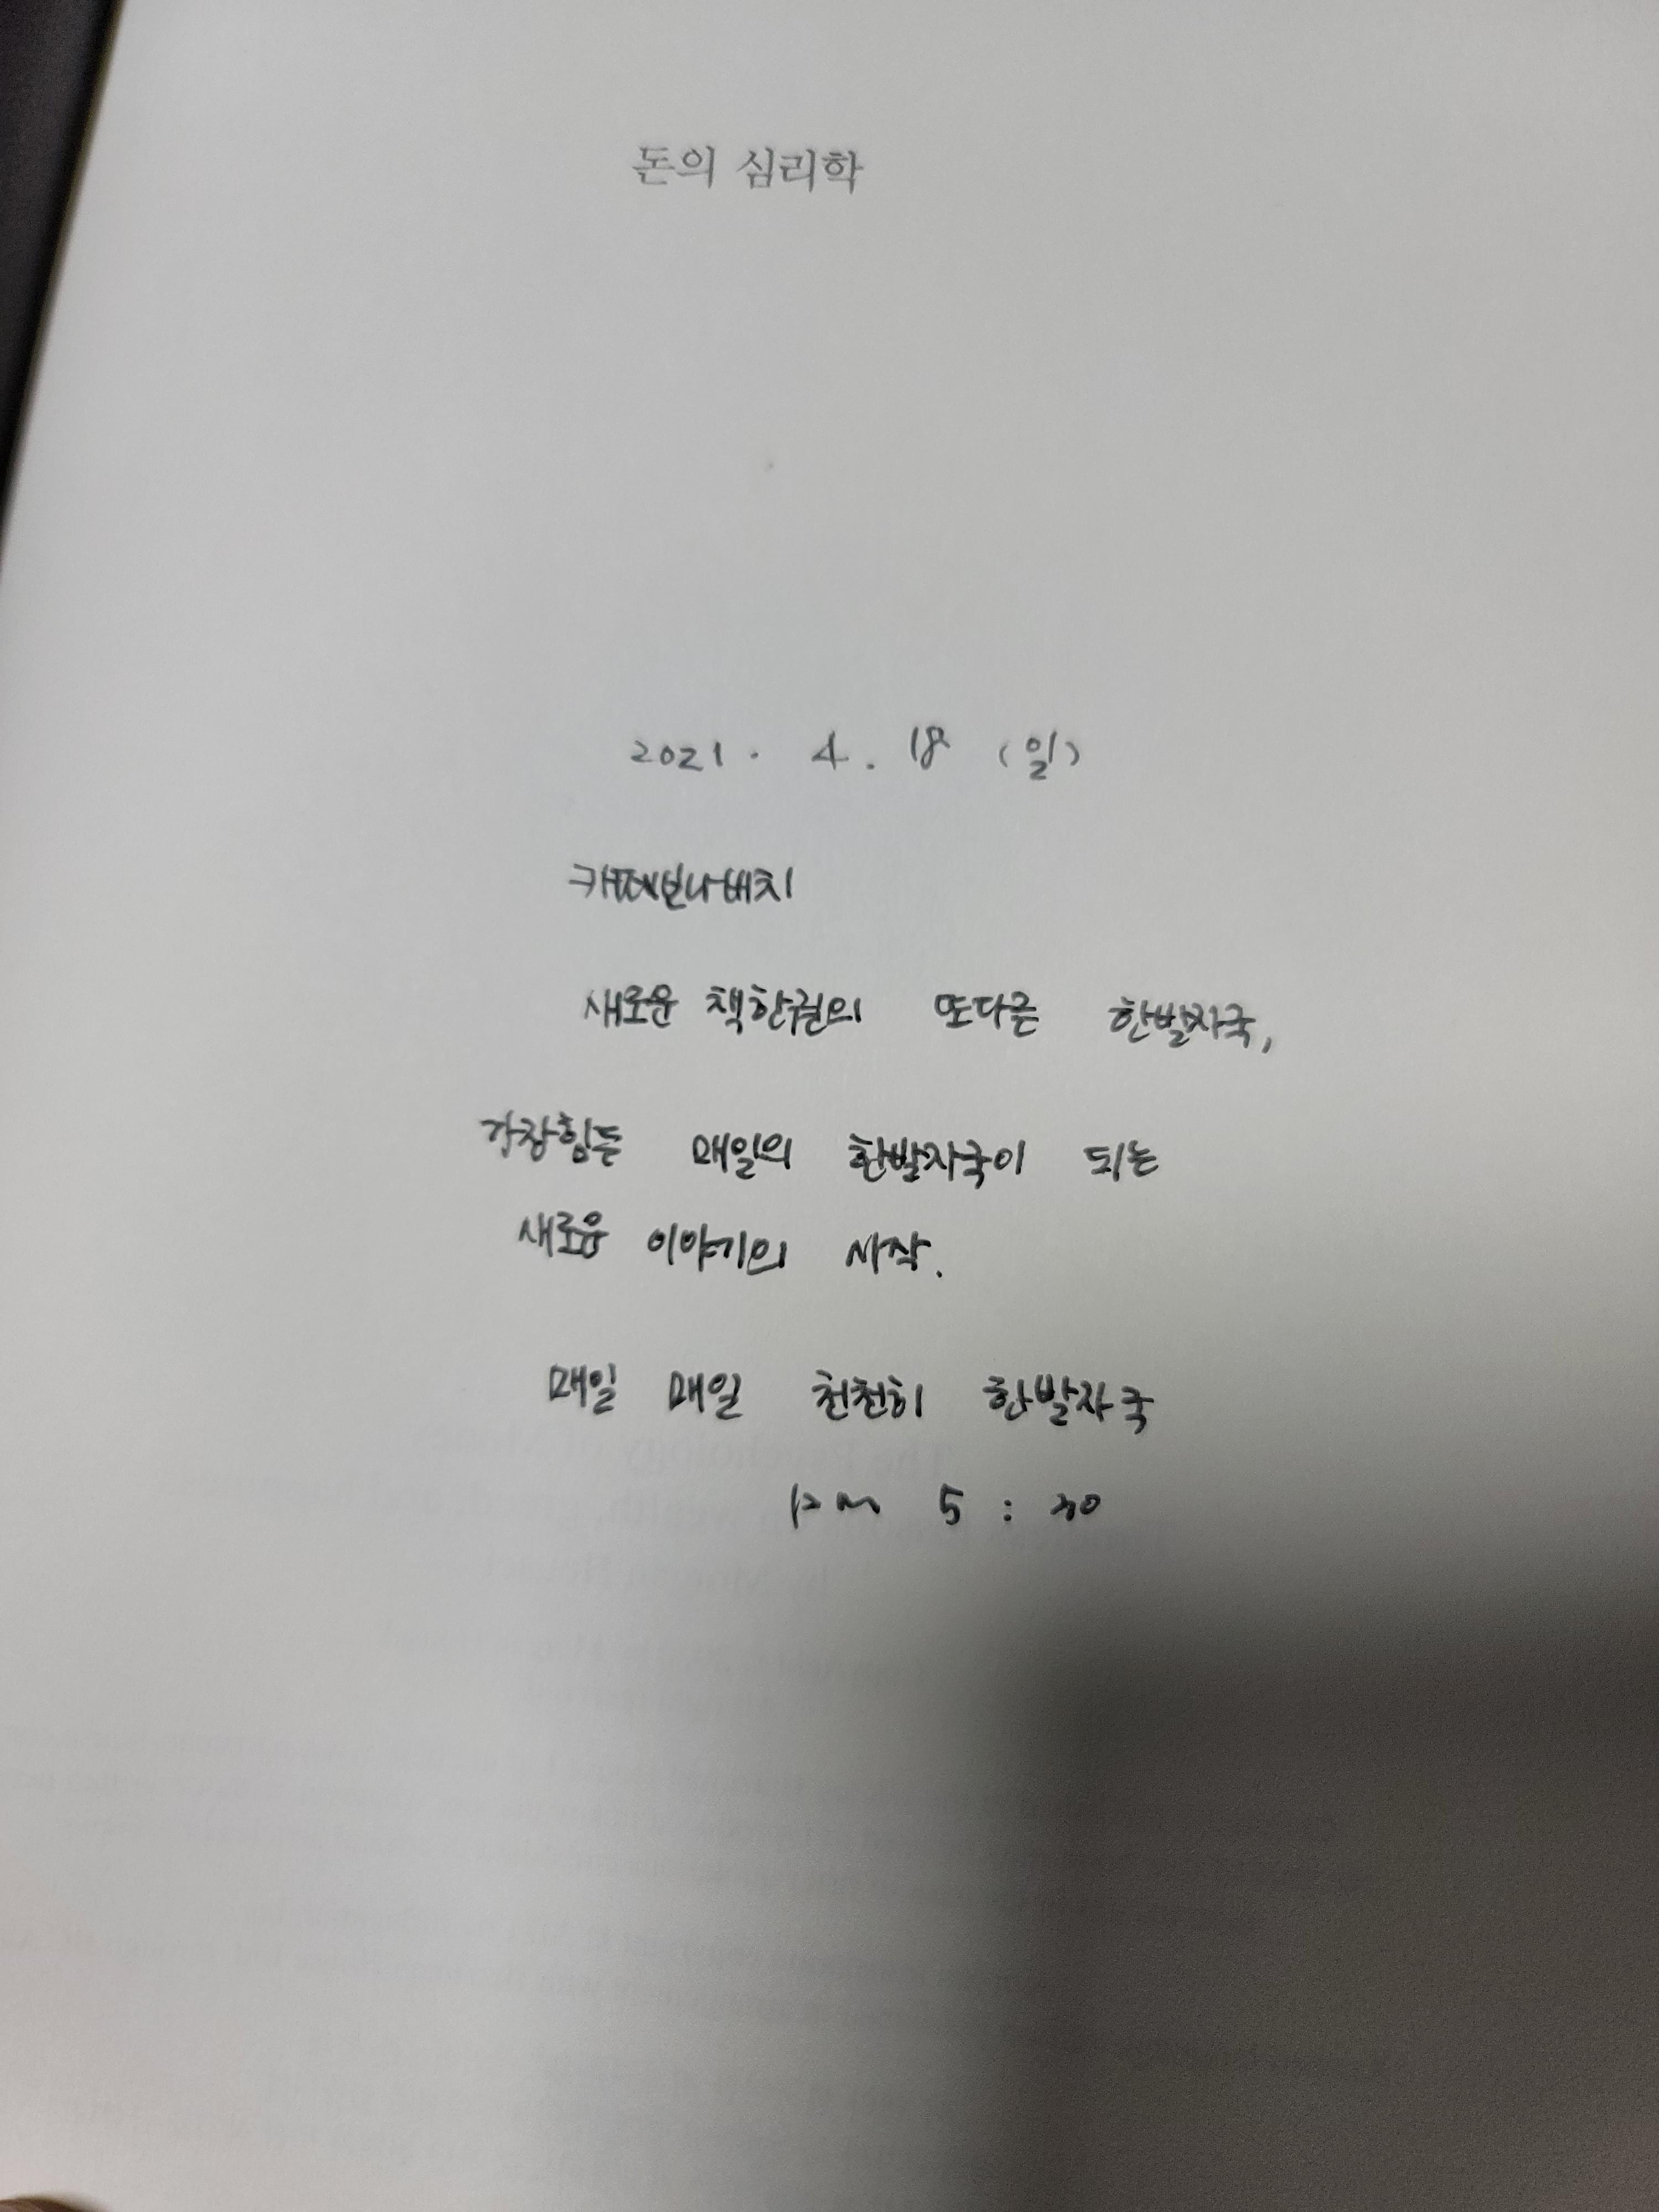 돈의 심리학
2021. 4. 18 (일)
카페보나베치
새로운 책한권의 또다른 한발자국,
가장힘든 매일의 한발자국이 되는
새로운 이야기의 시작.
매일 매일 천천히 한발자국
pm 5:30